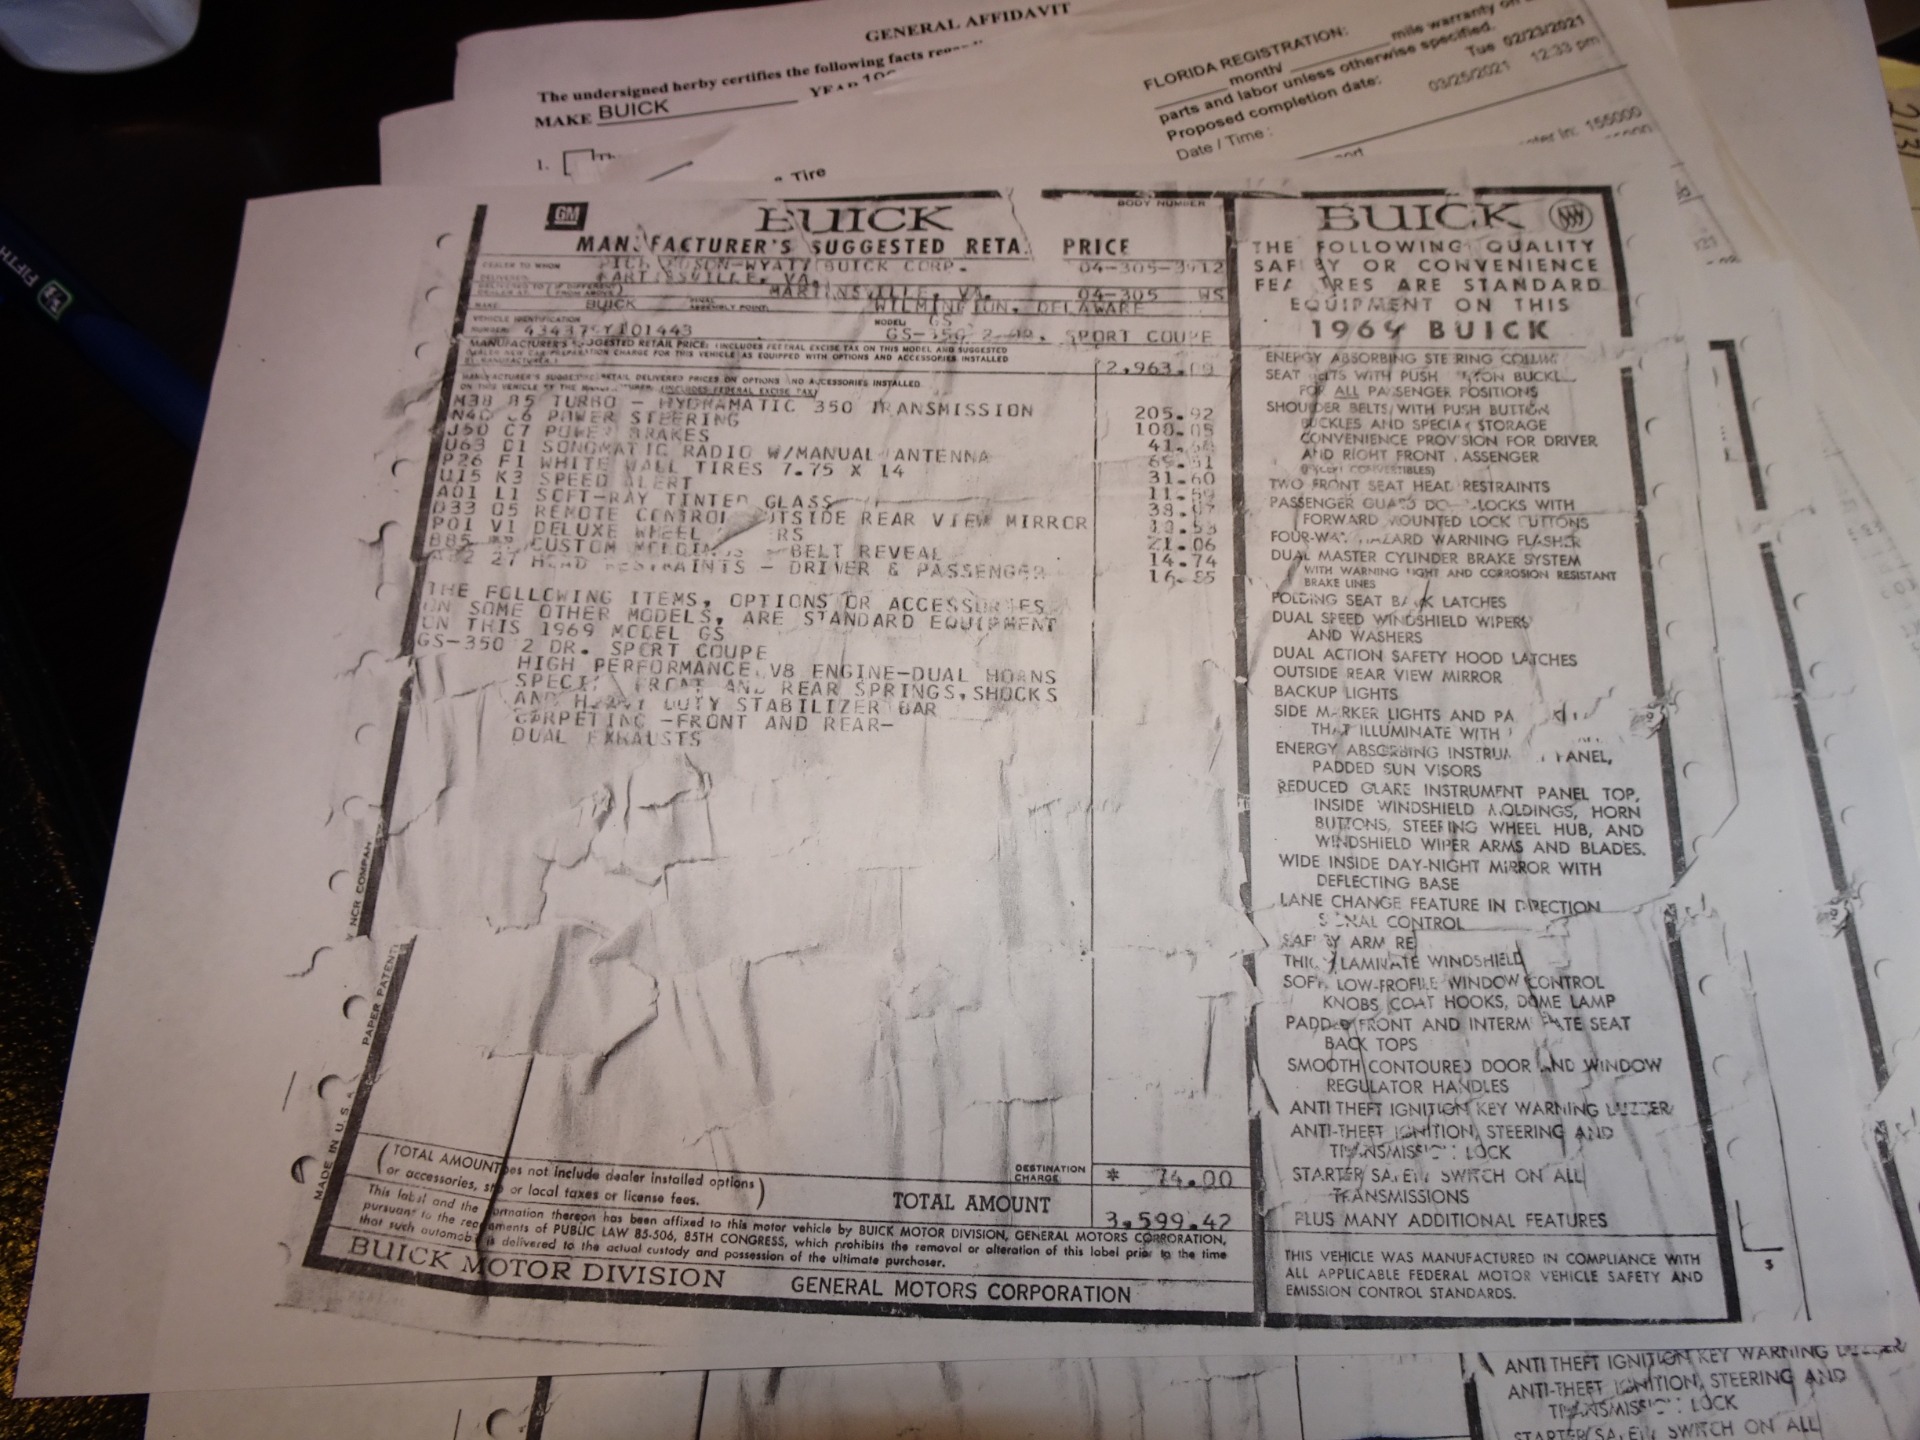 GENERAL AFFIDAVIT
The undersigned herby certifies the following facts
MAKE BUICK
YEAR
1.
Tire
FLORIDA REGISTRATION:
month/ mile warranty on
parts and labor unless otherwise specified.
Proposed completion date: Tue 02/23/2021
Date / Time : 03/25/2021 12:33 pm
155000
FIFTH
GM BUICK BODY NUMBER
MANUFACTURER'S SUGGESTED RETAIL PRICE
DEALER TO WHOM BUICK CORP. 04-305-3912
DELIVERED VA.
MARTINSVILLE, VA. 04-305 WS
MAKE BUICK FINAL ASSEMBLY POINT WILMINGTON, DELAWARE
VEHICLE IDENTIFICATION MODEL GS
NUMBER 434379Y101443 GS-350 2 DR. SPORT COUPE
MANUFACTURER'S SUGGESTED RETAIL PRICE: (INCLUDES FEDERAL EXCISE TAX ON THIS MODEL AND SUGGESTED
DEALER NEW CAR PREPARATION CHARGE FOR THIS VEHICLE AS EQUIPPED WITH OPTIONS AND ACCESSORIES INSTALLED
BY MANUFACTURER.) 2,963.
MANUFACTURER'S SUGGESTED RETAIL DELIVERED PRICES ON OPTIONS AND ACCESSORIES INSTALLED
ON THIS VEHICLE BY THE MANUFACTURER. (INCLUDES FEDERAL EXCISE TAX)
M38 B5 TURBO - HYDRAMATIC 350 TRANSMISSION 205.92
N40 C6 POWER STEERING 100.05
J50 C7 POWER BRAKES 41.
U63 D1 SONOMATIC RADIO W/MANUAL ANTENNA
P26 F1 WHITE WALL TIRES 7.75 X 14 31.60
U15 K3 SPEED ALERT 11.59
A01 L1 SOFT-RAY TINTED GLASS
D33 O5 REMOTE CONTROL OUTSIDE REAR VIEW MIRROR
P01 V1 DELUXE WHEEL 21.06
B85 CUSTOM MOLDINGS - BELT REVEAL 14.74
27 HEAD RESTRAINTS - DRIVER & PASSENGER 16.85
THE FOLLOWING ITEMS, OPTIONS OR ACCESSORIES
ON SOME OTHER MODELS, ARE STANDARD EQUIPMENT
ON THIS 1969 MODEL GS
GS-350 2 DR. SPORT COUPE
HIGH PERFORMANCE V8 ENGINE-DUAL HORNS
SPECIAL FRONT AND REAR SPRINGS, SHOCKS
AND HEAVY DUTY STABILIZER BAR
CARPETING -FRONT AND REAR-
DUAL EXHAUSTS
NCR COMPANY
PAPER PATENT
MADE IN U.S.A.
(TOTAL AMOUNT does not include dealer installed options
or accessories, state or local taxes or license fees.)
DESTINATION
CHARGE * 74.00
TOTAL AMOUNT 3,599.42
This label and the information thereon has been affixed to this motor vehicle by BUICK MOTOR DIVISION, GENERAL MOTORS CORPORATION,
pursuant to the requirements of PUBLIC LAW 85-506, 85TH CONGRESS, which prohibits the removal or alteration of this label prior to the time
that such automobile is delivered to the actual custody and possession of the ultimate purchaser.
BUICK MOTOR DIVISION GENERAL MOTORS CORPORATION
BUICK
THE FOLLOWING QUALITY
SAFETY OR CONVENIENCE
FEATURES ARE STANDARD
EQUIPMENT ON THIS
1969 BUICK
ENERGY ABSORBING STEERING COLUMN
SEAT BELTS WITH PUSH BUTTON BUCKLES
FOR ALL PASSENGER POSITIONS
SHOULDER BELTS WITH PUSH BUTTON
BUCKLES AND SPECIAL STORAGE
CONVENIENCE PROVISION FOR DRIVER
AND RIGHT FRONT PASSENGER
(EXCEPT CONVERTIBLES)
TWO FRONT SEAT HEAD RESTRAINTS
PASSENGER GUARD DOOR LOCKS WITH
FORWARD MOUNTED LOCK BUTTONS
FOUR-WAY HAZARD WARNING FLASHER
DUAL MASTER CYLINDER BRAKE SYSTEM
WITH WARNING LIGHT AND CORROSION RESISTANT
BRAKE LINES
FOLDING SEAT BACK LATCHES
DUAL SPEED WINDSHIELD WIPERS
AND WASHERS
DUAL ACTION SAFETY HOOD LATCHES
OUTSIDE REAR VIEW MIRROR
BACKUP LIGHTS
SIDE MARKER LIGHTS AND
THAT ILLUMINATE WITH
ENERGY ABSORBING INSTRUMENT PANEL,
PADDED SUN VISORS
REDUCED GLARE INSTRUMENT PANEL TOP,
INSIDE WINDSHIELD MOLDINGS, HORN
BUTTONS, STEERING WHEEL HUB, AND
WINDSHIELD WIPER ARMS AND BLADES.
WIDE INSIDE DAY-NIGHT MIRROR WITH
DEFLECTING BASE
LANE CHANGE FEATURE IN DIRECTION
SIGNAL CONTROL
SAFETY ARM
THICK LAMINATE WINDSHIELD
SOFT, LOW-PROFILE WINDOW CONTROL
KNOBS, COAT HOOKS, DOME LAMP
PADDED FRONT AND INTERMEDIATE SEAT
BACK TOPS
SMOOTH CONTOURED DOOR AND WINDOW
REGULATOR HANDLES
ANTI THEFT IGNITION KEY WARNING BUZZER
ANTI-THEFT IGNITION, STEERING AND
TRANSMISSION LOCK
STARTER SAFETY SWITCH ON ALL
TRANSMISSIONS
PLUS MANY ADDITIONAL FEATURES
THIS VEHICLE WAS MANUFACTURED IN COMPLIANCE WITH
ALL APPLICABLE FEDERAL MOTOR VEHICLE SAFETY AND
EMISSION CONTROL STANDARDS.
3
ANTI THEFT IGNITION KEY WARNING BUZZER
ANTI-THEFT IGNITION, STEERING AND
TRANSMISSION LOCK
STARTER SAFETY SWITCH ON ALL